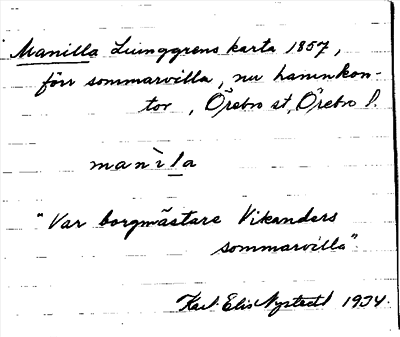 Manilla Ljunggrens karta 1857,
förr sommarvilla, nu hamnkon-
tor, Örebro st, Örebro l.
manìla
"Var borgmästare Vikanders
sommarvilla".
Karl-Elis Nystedt 1934.